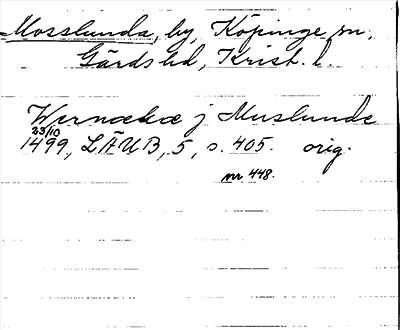 Mosslunda, by, Köpinge sn,
Gärds hd, Krist. l.
Wernækæ j Muslunde
23/10
1499, LÄUB, 5, s. 405. orig.
nr 448.